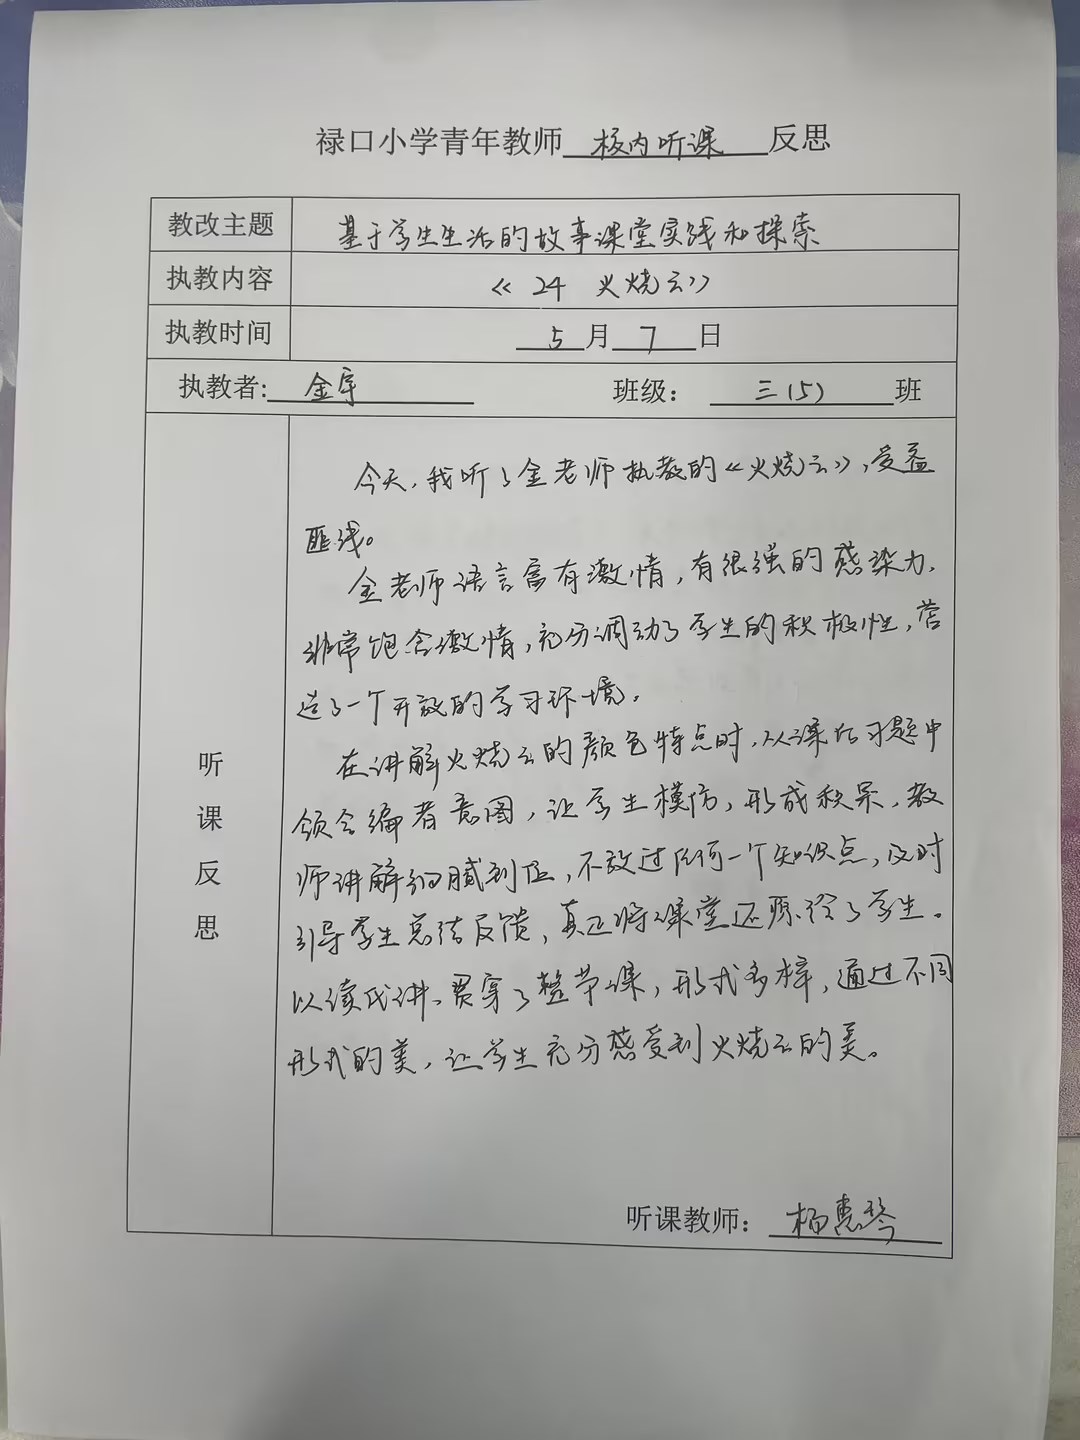 禄口小学青年教师 校内听课 反思
教改主题 基于学生生活的故事课堂实践和探索
执教内容 《24 火烧云》
执教时间 5月7日
执教者: 金宇 班级: 三(5)班
听课反思
今天,我听了金老师执教的《火烧云》,受益
匪浅。
金老师语言富有激情,有很强的感染力,
非常饱含激情,充分调动了学生的积极性,营
造了一个开放的学习环境。
在讲解火烧云的颜色特点时,从课后习题中
领会编者意图,让学生模仿,形成积累,教
师讲解细腻到位,不放过任何一个知识点,及时
引导学生总结反馈,真正将课堂还原给了学生。
以读代讲、贯穿了整节课,形式多样,通过不同
形式的美,让学生充分感受到火烧云的美。
听课教师: 杨惠琴